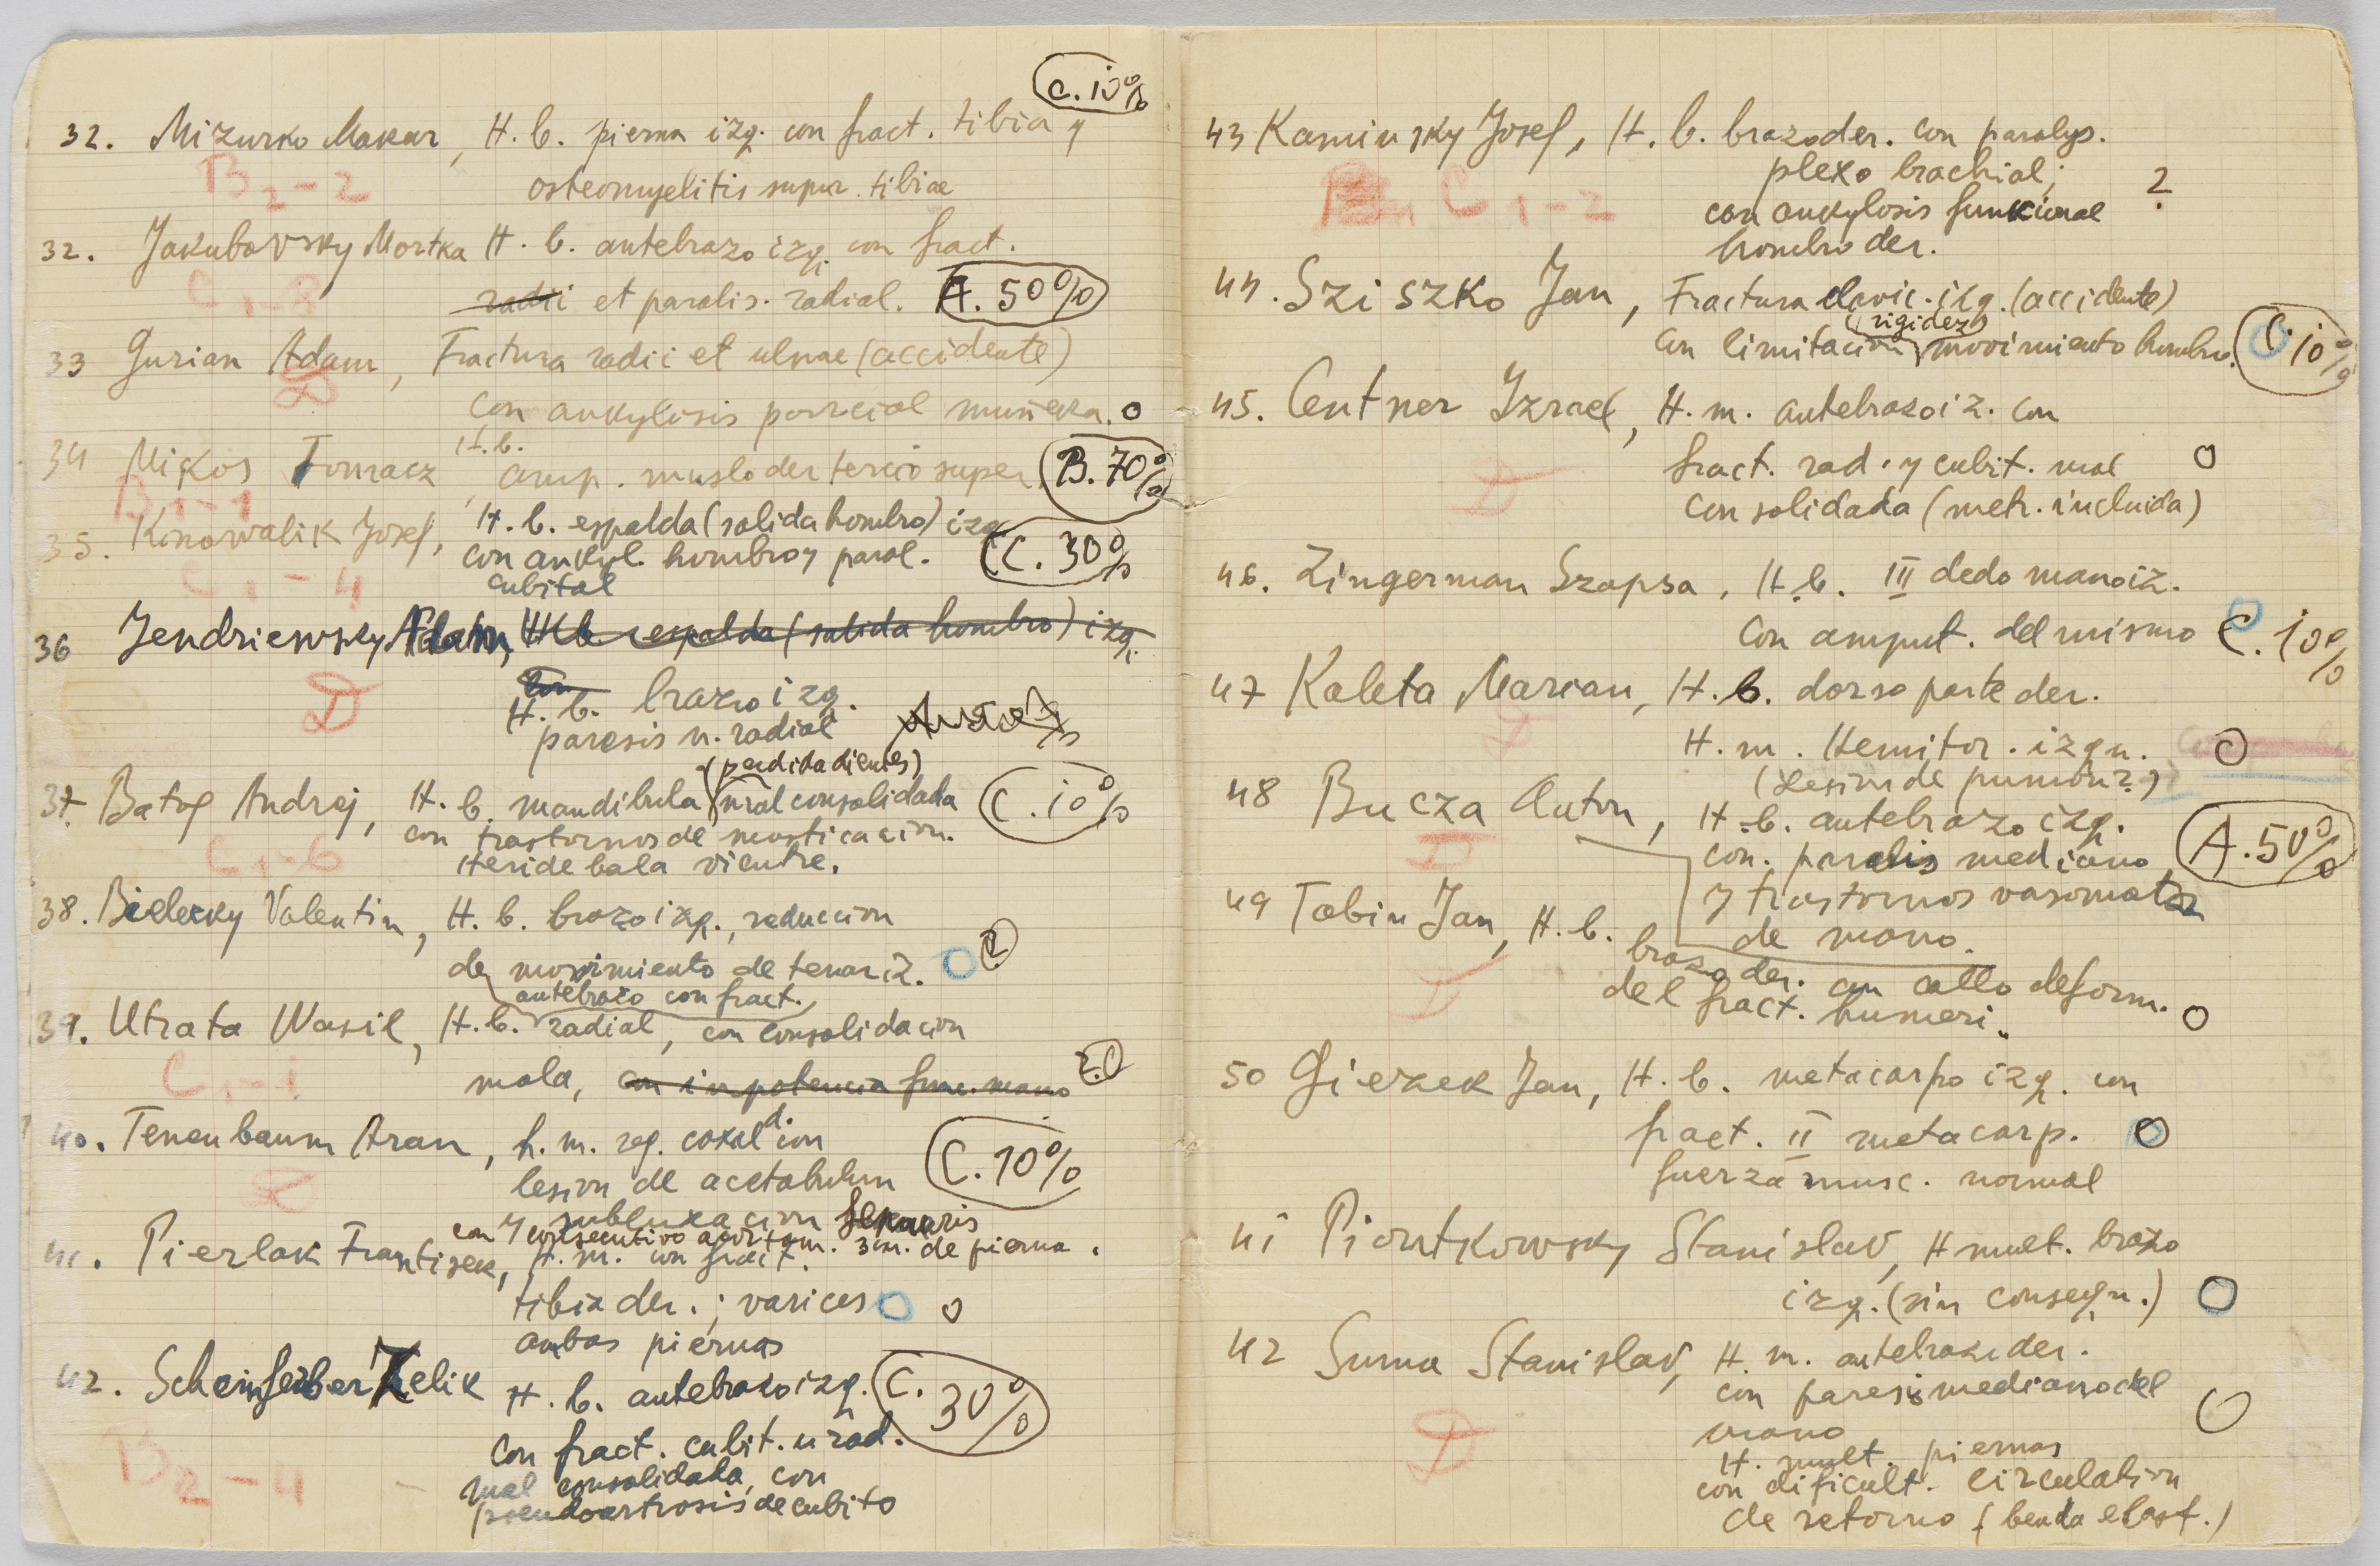 C. 10%
32. Mizurko Makar, H. b. pierna izq. con fract. tibia y
B2-2 osteomyelitis supur. tibiae
32. Jakubovsky Mortka H. b. antebrazo izq. con fract.
C1-8 radii et paralis. radial. A. 50%
33 Gurian Adam, Fractura radii et ulnae (accidente)
D con ankylosis parcial muñeka. o
34 Mikos Tomacz, H.b. amp. muslo der tercio super. B. 70%
B1-1
35. Konowalik Josef, H. b. espalda (salida hombro) izq
con ankyl. hombro y paral. C. 30%
C1-4 cubital
36 Jendriewsky Adam, H b espalda (salida hombro) izq.
con
D H. b. brazo izq.
paresis n. radial
(perdida dientes)
37. Batog Andrej, H. b. mandibula mal consolidada C. 10%
con trastornos de masticacion.
C1-6 Heride bala vientre.
38. Bielezky Valentin, H. b. brazo izq., reduccion
de movimiento de tenar iz. O
antebrazo con fract.
39. Utrata Wasil, H. b. radial, con consolidacion
C1-1 mala, con inpotencia func. mano
40. Tenenbaum Aran, h. m. reg. coxal d. con
lesion de acetabulum C. 10%
y subluxacion femoris
con consecutivo acortam. 3cm. de pierna.
41. Pierlak Frantisek, H. m. con fract.
tibia der.; varices O o
ambas piernas
42. Scheinferber Zelik H. b. antebrazo izq. C. 30%
con fract. cubit. u rad.
B2-4 mal consolidada, con
pseudoartrosis de cubito
43 Kaminsky Josef, H. b. brazo der. con paralys.
plexo brachial;
C1-2 con ankylosis funkcional ?
hombro der.
44. Sziszko Jan, Fractura clavic. izq. (accidente)
(rigidez)
con limitacion movimiento hombro. C. 10%
45. Centner Izrael, H. m. antebrazo iz. con
D fract. rad. y cubit. mal O
consolidada (metr. incluida)
46. Zingerman Szapsa, H. b. III dedo mano iz.
con amput. del mismo C. 10%
47 Kaleta Marian, H. b. dorso parte der.
D H. m. Hemitor. izqu. O
(Lesion de pumon?)
48 Bucza Anton, H. b. antebrazo izq.
D con. paralis mediano A. 50%
y trastornos vasomotor
de mano.
49 Tobin Jan, H. b.
brazo der. con callo deform.
D del fract. humeri. o
50 Gierek Jan, H. b. metacarpo izq. con
fract. II metacarp. O
fuerza musc. normal
41 Piontkowsky Stanislav, H mult. brazo
izq. (sin consequ.) O
42 Suma Stanislav, H. m. antebrazo der.
con paresis mediano del
D mano O
H. mult. piernas
con dificult. circulation
de retorno (benda elast.)